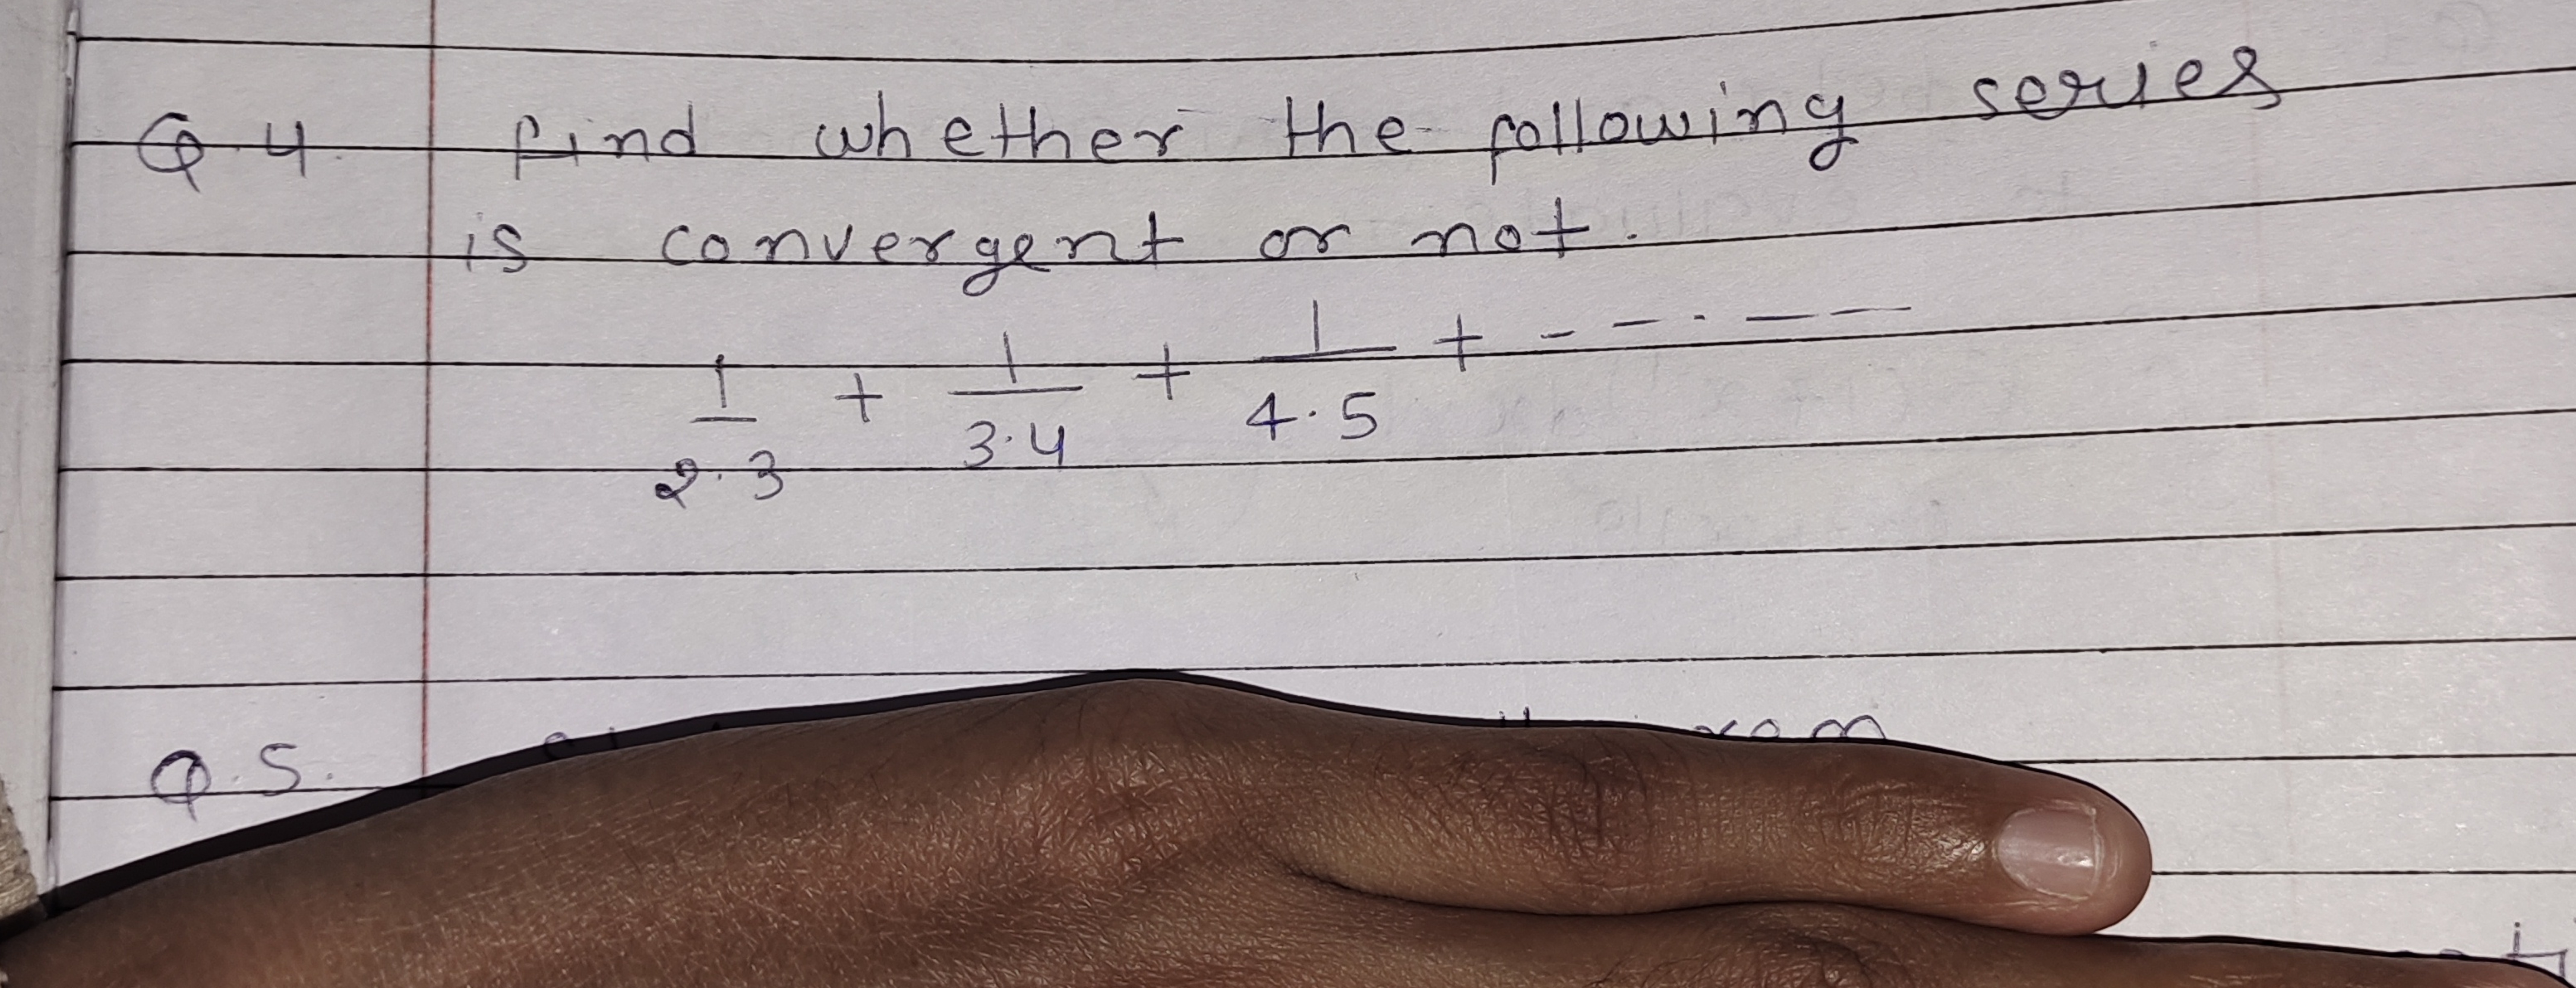 Q.4. find whether the following series
is convergent or not.
1/2.3 + 1/3.4 + 1/4.5 + - - - . - -
Q.5.